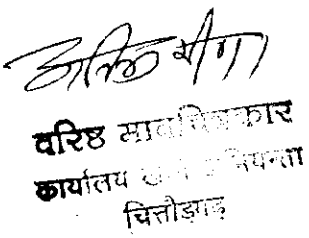 वरिष्ठ मानचित्रकार
कार्यालय खनि अभियन्ता
चित्तौड़गढ़